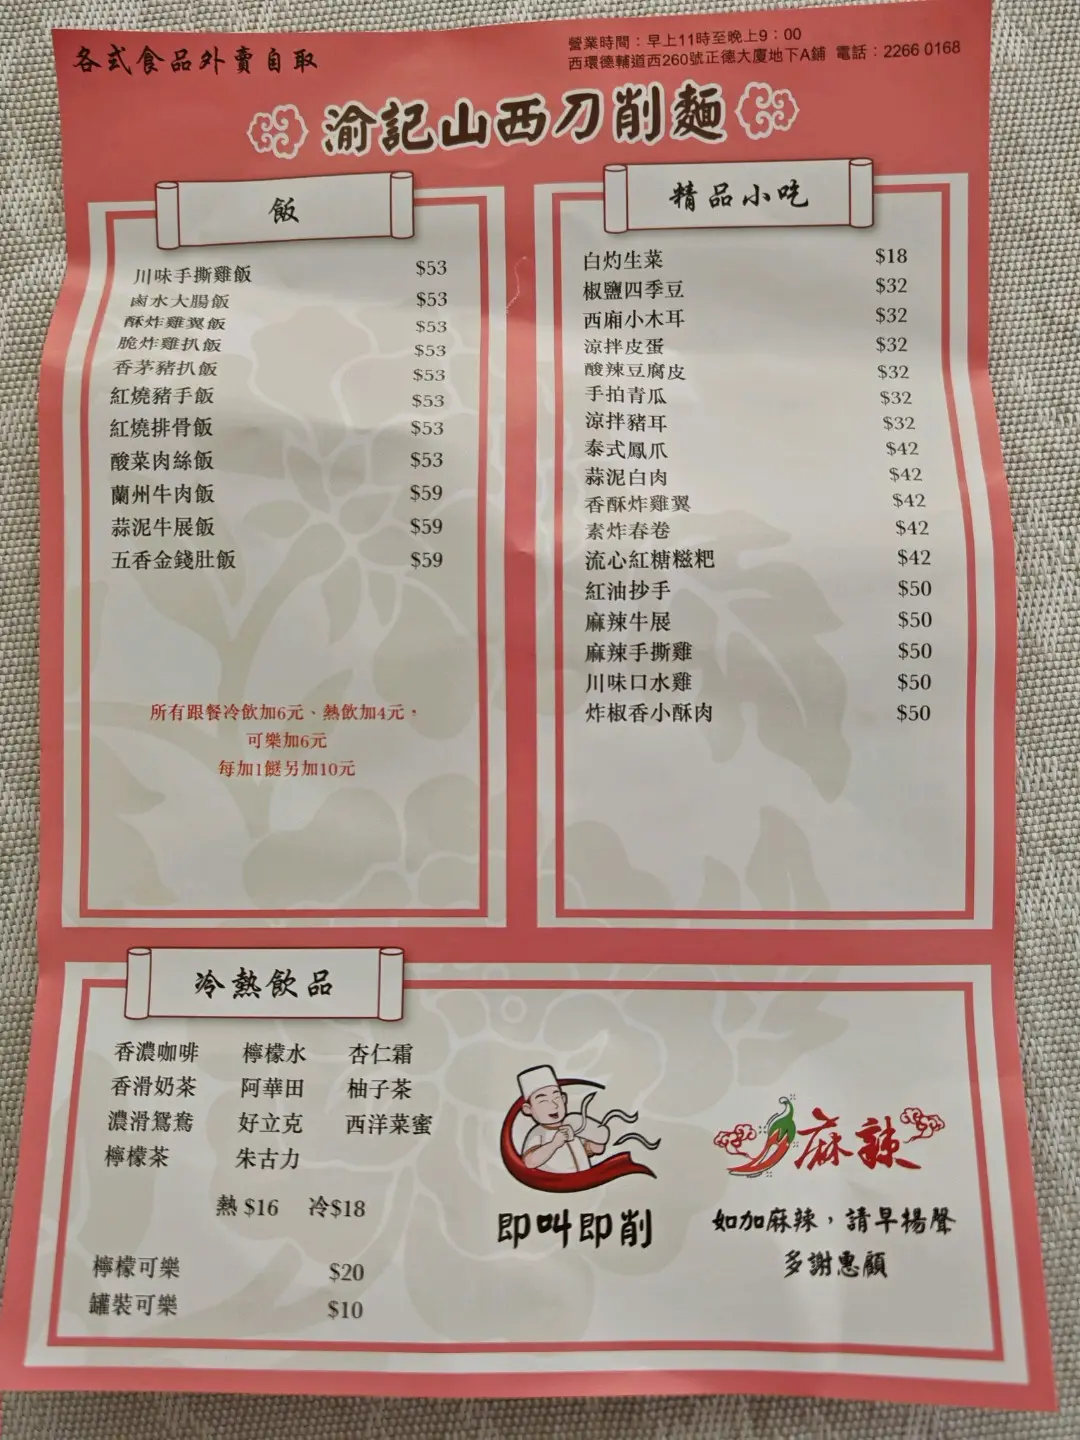 各式食品外賣自取
營業時間：早上11時至晚上9：00
西環德輔道西260號正德大廈地下A鋪 電話：2266 0168
渝記山西刀削麵
飯
川味手撕雞飯 $53
鹵水大腸飯 $53
酥炸雞翼飯 $53
脆炸雞扒飯 $53
香茅豬扒飯 $53
紅燒豬手飯 $53
紅燒排骨飯 $53
酸菜肉絲飯 $53
蘭州牛肉飯 $59
蒜泥牛展飯 $59
五香金錢肚飯 $59
所有跟餐冷飲加6元、熱飲加4元，
可樂加6元
每加1餸另加10元
精品小吃
白灼生菜 $18
椒鹽四季豆 $32
西廂小木耳 $32
涼拌皮蛋 $32
酸辣豆腐皮 $32
手拍青瓜 $32
涼拌豬耳 $32
泰式鳳爪 $42
蒜泥白肉 $42
香酥炸雞翼 $42
素炸春卷 $42
流心紅糖糍粑 $42
紅油抄手 $50
麻辣牛展 $50
麻辣手撕雞 $50
川味口水雞 $50
炸椒香小酥肉 $50
冷熱飲品
香濃咖啡 檸檬水 杏仁霜
香滑奶茶 阿華田 柚子茶
濃滑鴛鴦 好立克 西洋菜蜜
檸檬茶 朱古力
熱 $16 冷$18
檸檬可樂 $20
罐裝可樂 $10
即叫即削
麻辣
如加麻辣，請早揚聲
多謝惠顧